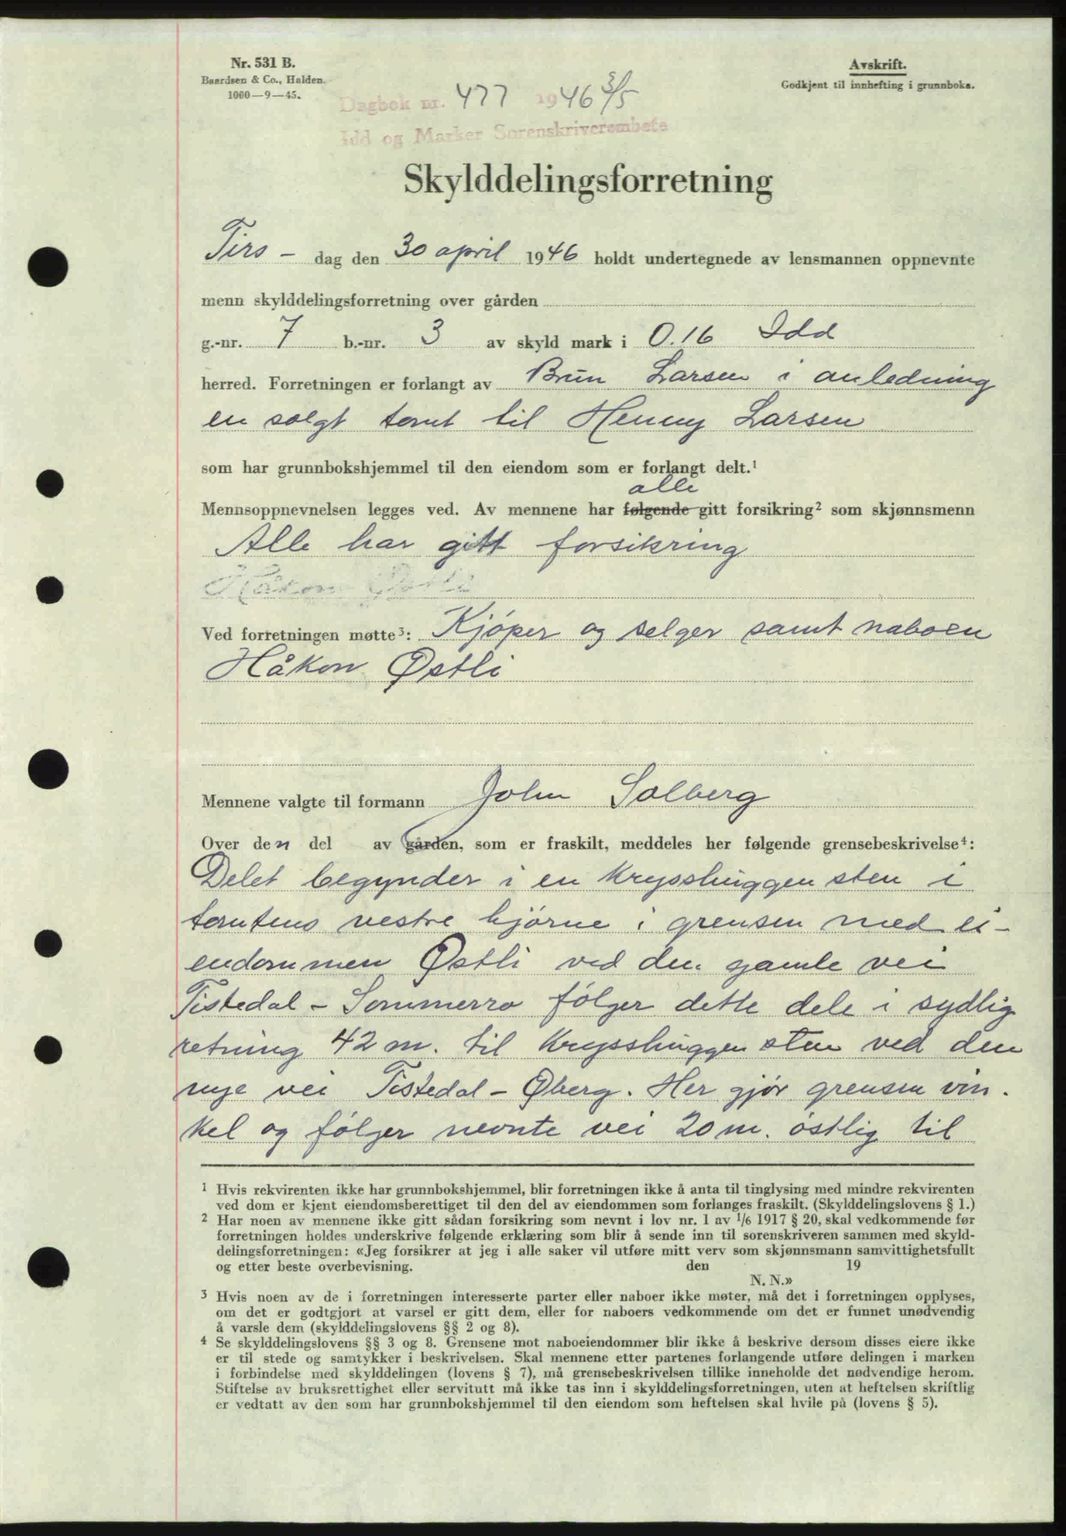 Nr. 531 B.
Baardsen & Co., Halden.
1000—9—45.
Avskrift.
Godkjent til innhefting i grunnboka.
Dagbok nr. 477 1946 3/5
Idd og Marker Sorenskriverembete
Skylddelingsforretning
Tirs- dag den 30 april 1946 holdt undertegnede av lensmannen oppnevnte
menn skylddelingsforretning over gården
g.-nr. 7 b.-nr. 3 av skyld mark i 0.16 Idd
herred. Forretningen er forlangt av Brun Larsen i anledning
en solgt tomt til Henny Larsen
som har grunnbokshjemmel til den eiendom som er forlangt delt.¹
alle
Mennsoppnevnelsen legges ved. Av mennene har følgende gitt forsikring² som skjønnsmenn
Alle har gitt forsikring
Håkon Østli
Ved forretningen møtte³: Kjøper og selger samt naboen
Håkon Østli
Mennene valgte til formann John Solberg
Over den del av gården, som er fraskilt, meddeles her følgende grensebeskrivelse⁴:
Delet begynder i en Krysshuggen sten i
tomtens vestre hjørne i grensen med ei-
endommen Østli ved den gamle vei
Tistedal - Sommerro følger dette dele i sydlig
retning 42 m. til Krysshuggen sten ved den
nye vei Tistedal - Øberg. Her gjør grensen vin-
kel og følger nevnte vei 20 m. østlig til
¹ Hvis rekvirenten ikke har grunnbokshjemmel, blir forretningen ikke å anta til tinglysing med mindre rekvirenten
ved dom er kjent eiendomsberettiget til den del av eiendommen som forlanges fraskilt. (Skylddelingslovens § 1.)
² Har noen av mennene ikke gitt sådan forsikring som nevnt i lov nr. 1 av 1/6 1917 § 20, skal vedkommende før
forretningen holdes underskrive følgende erklæring som blir å sende inn til sorenskriveren sammen med skyld-
delingsforretningen: «Jeg forsikrer at jeg i alle saker vil utføre mitt verv som skjønnsmann samvittighetsfullt
og etter beste overbevisning. den 19
N. N.»
³ Hvis noen av de i forretningen interesserte parter eller naboer ikke møter, må det i forretningen opplyses,
om det er godtgjort at varsel er gitt dem, eller for naboers vedkommende om det er funnet unødvendig
å varsle dem (skylddelingslovens §§ 2 og 8).
⁴ Se skylddelingslovens §§ 3 og 8. Grensene mot naboeiendommer blir ikke å beskrive dersom disses eiere ikke
er til stede og samtykker i beskrivelsen. Skal mennene etter partenes forlangende utføre delingen i marken
i forbindelse med skylddelingen (lovens § 7), må grensebeskrivelsen tillike inneholde det nødvendige herom.
Stiftelse av bruksrettighet eller servitutt må ikke tas inn i skylddelingsforretningen, uten at heftelsen skriftlig
er vedtatt av den som har grunnbokshjemmel til den eiendom som heftelsen skal hvile på (lovens § 5).